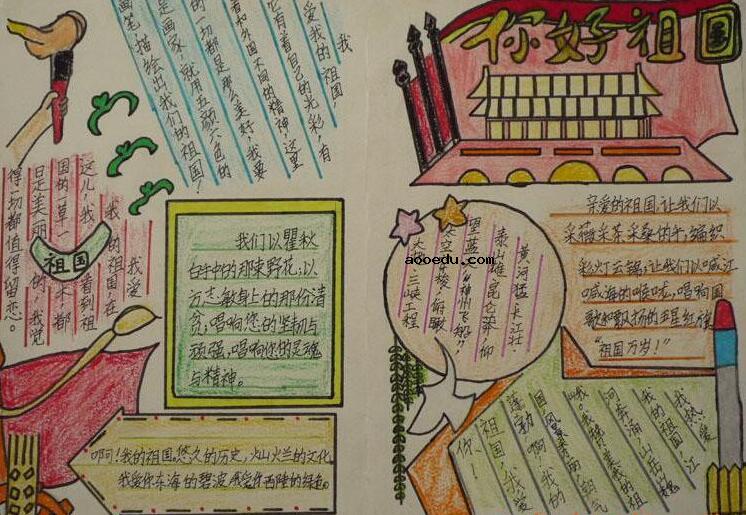 你好祖国
我
爱我的祖国，
它有着自己的光彩，有
着和外国不同的精神，这里
的一切都是那么美好，我要
是画家，就用五颜六色的
画笔，描绘出我们的祖国！
我爱
我的祖国，在
这儿，我看到祖
国的一草一木都
是美丽的，我觉
得一切都值得留恋。
祖国
我们以瞿秋
白手中的那束野花；以
方志敏身上的那份清
贫；唱响您的坚韧与
顽强，唱响你的灵魂
与精神。
啊！我的祖国。悠久的历史，灿烂的文化
我爱你东海的碧波，我爱你西陲的绿色。
黄河猛 长江壮，
泰山雄 昆仑莽，仰
望蓝 “神州飞船”
太空 俯瞰
大地 三峡工程
亲爱的祖国，让我们以
采薇采茶采桑的手，编织
彩灯云锦，让我们以喊江
喊海的喉咙，唱响国
歌和飘扬的五星红旗
“祖国万岁！”
我热爱
我的祖国，江
河奔涌，山岳巍
峨。我赞美我的祖
国，风景秀丽，朝气
蓬勃。啊！我的
祖国，我爱
你！
aooedu.com